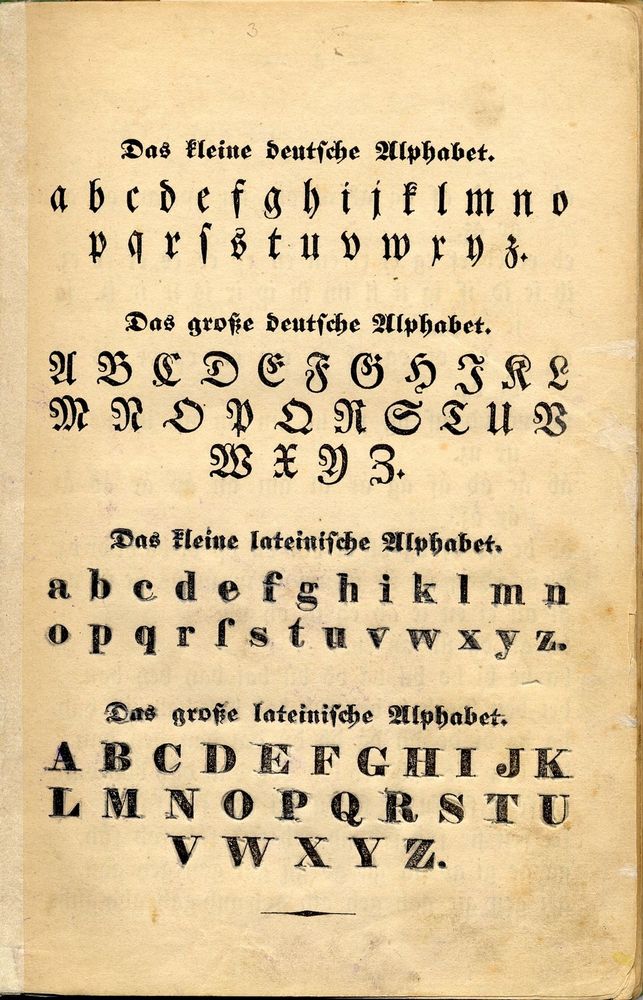 3
Das kleine deutſche Alphabet.
a b c d e f g h i j k l m n o
p q r ſ s t u v w x y z.
Das große deutſche Alphabet.
A B C D E F G H J K L
M N O P Q R S T U V
W X Y Z.
Das kleine lateiniſche Alphabet.
a b c d e f g h i k l m n
o p q r ſ s t u v w x y z.
Das große lateiniſche Alphabet.
A B C D E F G H I J K
L M N O P Q R S T U
V W X Y Z.